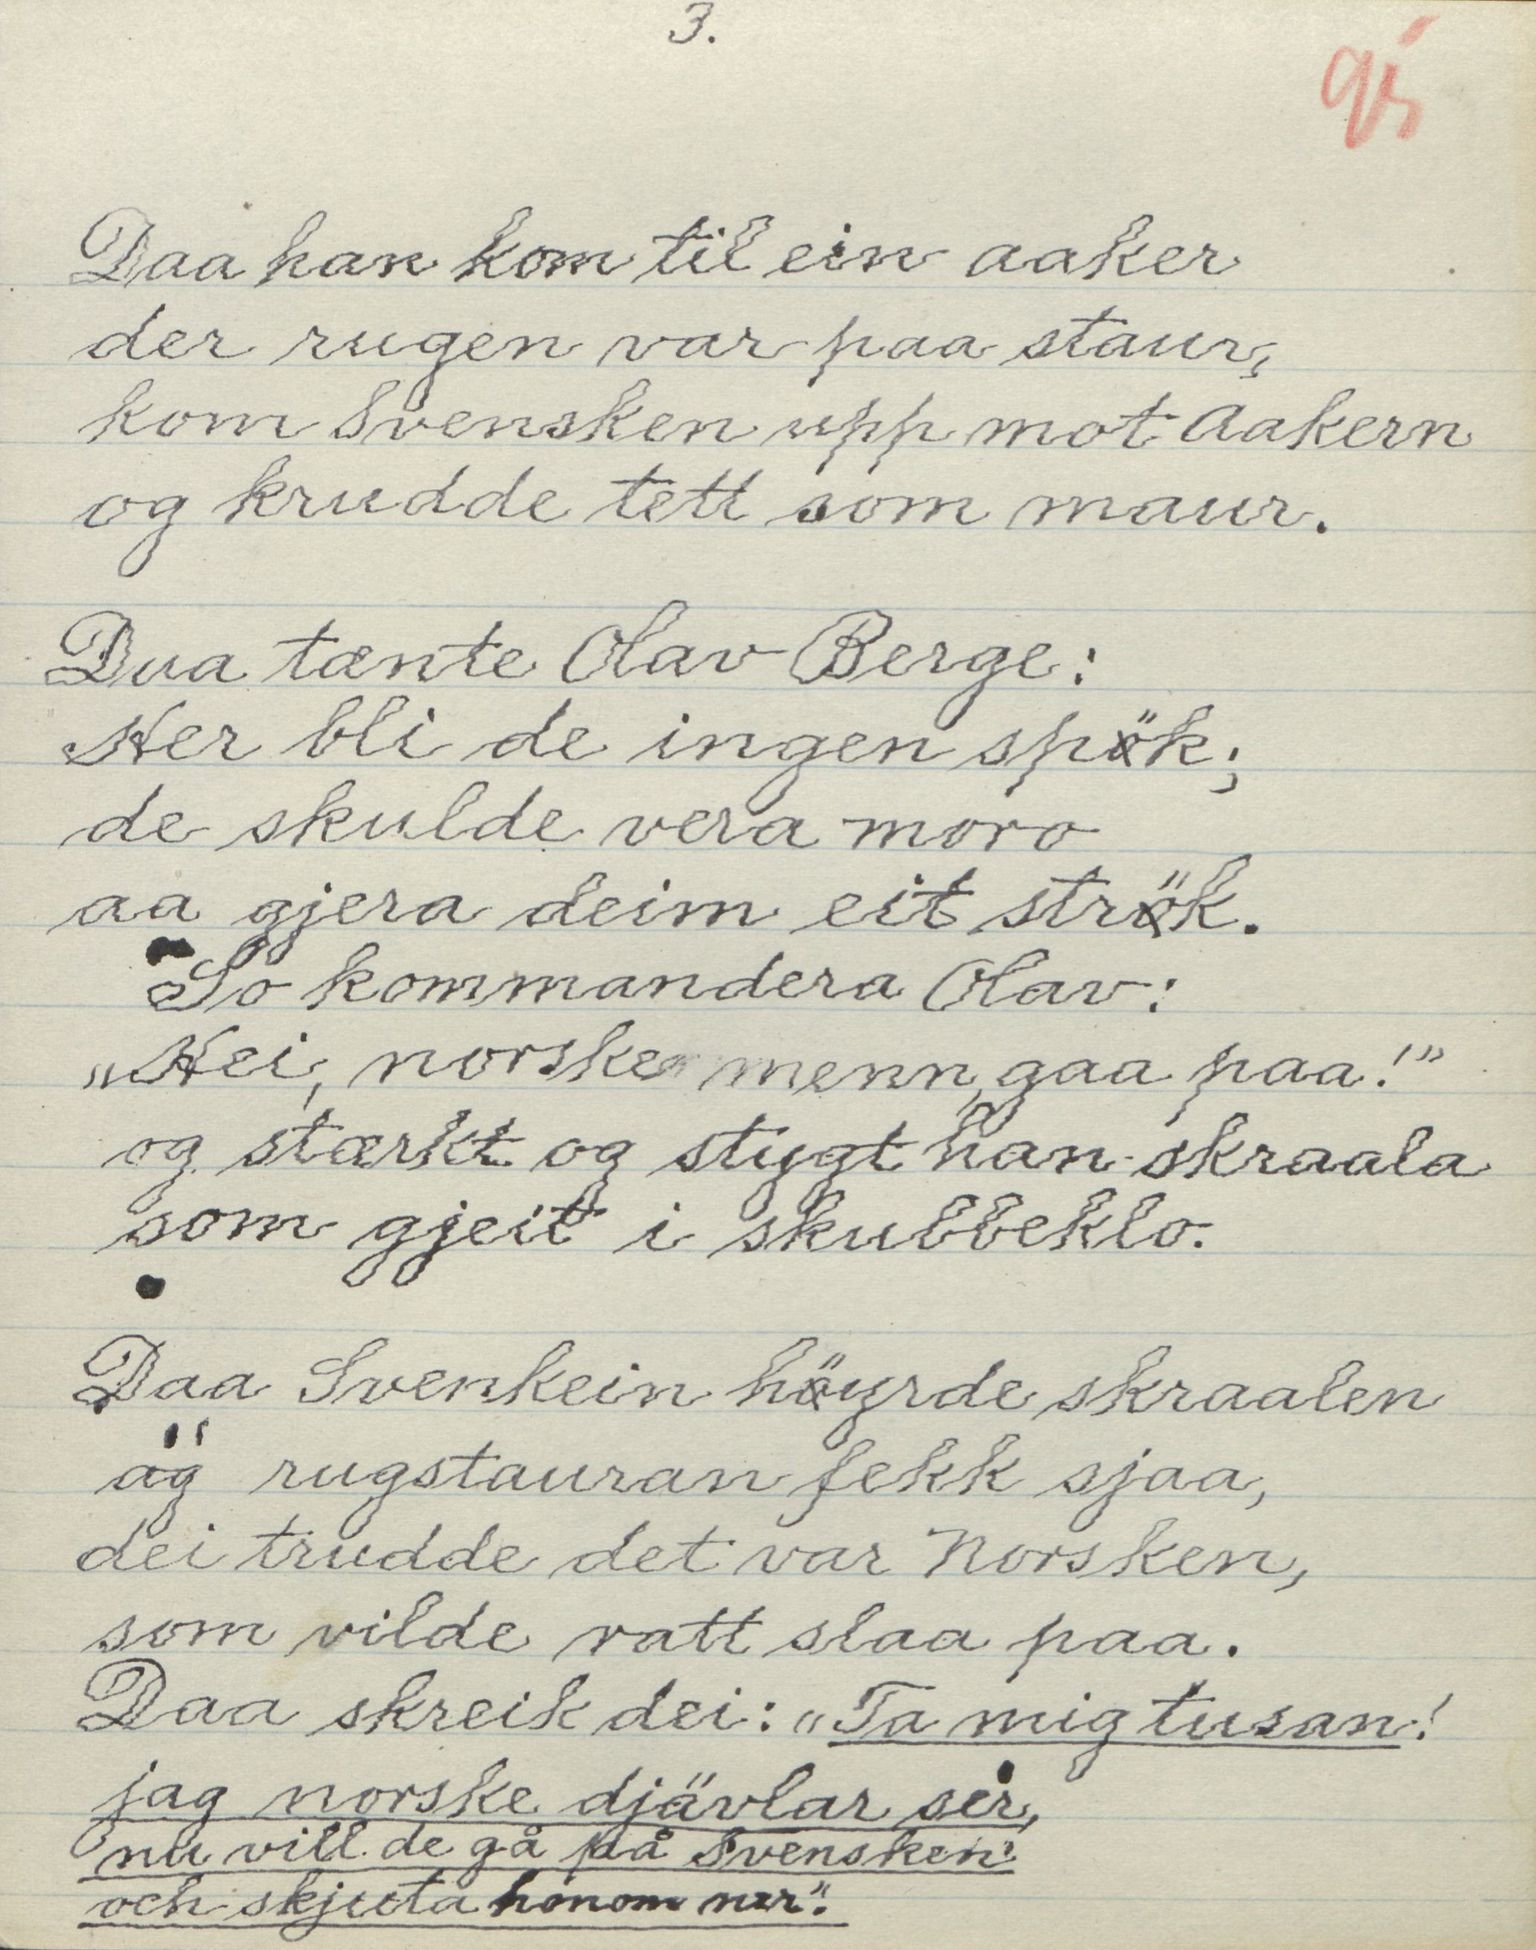 3.
Daa han kom til ein aaker
der rugen var paa staur,
kom Svensken upp mot Aakern
og krudde tett som maur.
Dua tænte Olav Berge:
Her bli de ingen spök;
de skulde vera moro
aa gjera deim eit strök.
So kommandera Olav:
„Hei, norske menn, gaa paa!”
og stærkt og stygt han skraala
som gjeit i skubbeklo.
Daa Svenkein höyrde skraalen
äg rugstauran fekk sjaa,
dei trudde det var Norsken,
som vilde ratt slaa paa.
Daa skreik dei: „Ta mig tusan!
jag norske djävlar ser,
nu vill de gå på Svensken
och skjuta honom ner”.